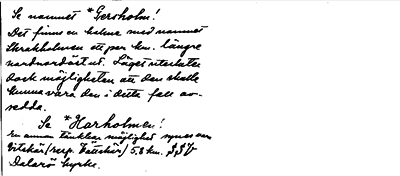 Se namnet *Gersholm!
Det finns en holme med namnet
Skrakholmen ett par km. längre
nordnordöst ut. Läget utesluter
dock möjligheten att den skulle
kunna vara den i detta fall av-
sedda.
Se *Harholmen!
En annan tänkbar möjlighet synes vara
Vitskär (resp. Kättskär) 5.8 km.
Dalarö kyrka.